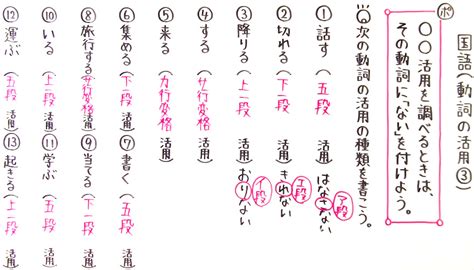 国語(動詞の活用③)
ポ
〇〇活用を調べるときは、
その動詞に「ない」を付けよう。
Q次の動詞の活用の種類を書こう。
①話す(五段 活用) はなさない ア段
②切れる(下一段 活用) きれない エ段
③降りる(上一段 活用) おりない イ段
④する(サ行変格 活用)
⑤来る(カ行変格 活用)
⑥集める(下一段 活用)
⑦書く(五段 活用)
⑧旅行する(サ行変格 活用)
⑨当てる(下一段 活用)
⑩いる(上一段 活用)
⑪学ぶ(五段 活用)
⑫運ぶ(五段 活用)
⑬起きる(上一段 活用)